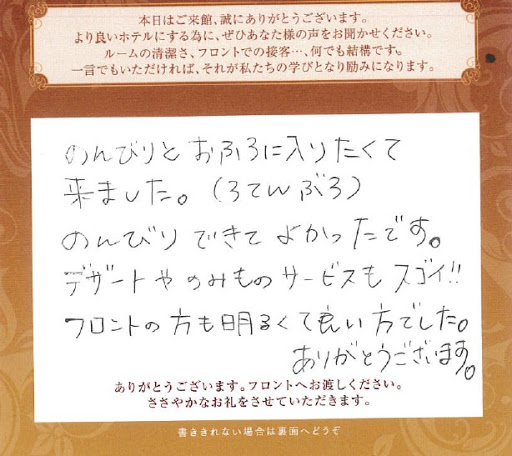 本日はご来館、誠にありがとうございます。
より良いホテルにする為に、ぜひあなた様の声をお聞かせください。
ルームの清潔さ、フロントでの接客…、何でも結構です。
一言でもいただければ、それが私たちの学びとなり励みになります。
のんびりとおふろに入りたくて
来ました。(ろてんぶろ)
のんびりできてよかったです。
デザートやのみものサービスもスゴイ!!
フロントの方も明るくて良い方でした。
ありがとうございます。
ありがとうございます。フロントへお渡しください。
ささやかなお礼をさせていただきます。
書ききれない場合は裏面へどうぞ